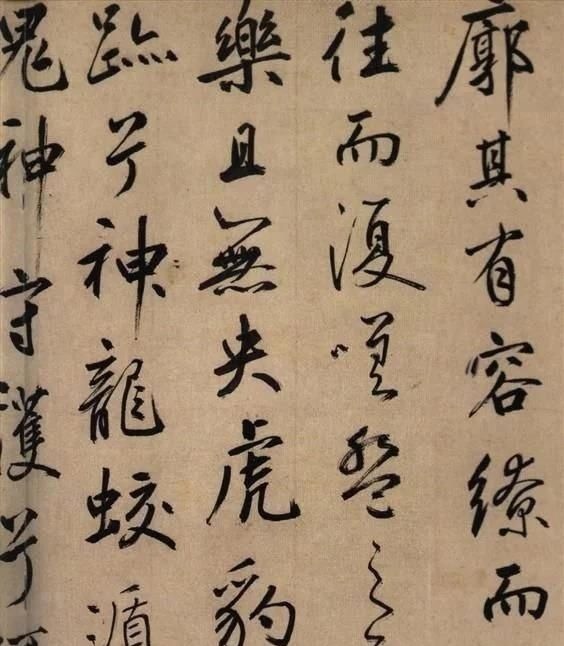 廓其有容繚而
往而復嗟盤之
樂且無央虎豹
跡兮神龍蛟遁
鬼神守護兮